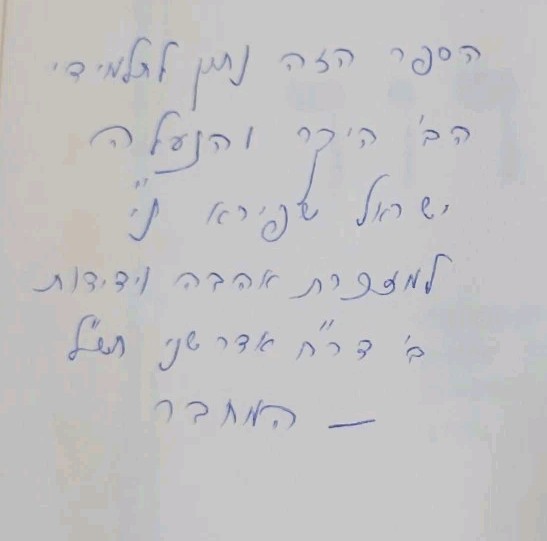 הספר הזה נתון לתלמידי
הב' היקר והנעלה
ישראל שפירא ני"
למזכרת אהבה וידידות
ב' דר"ח אדר שני תש"ל
— המחבר